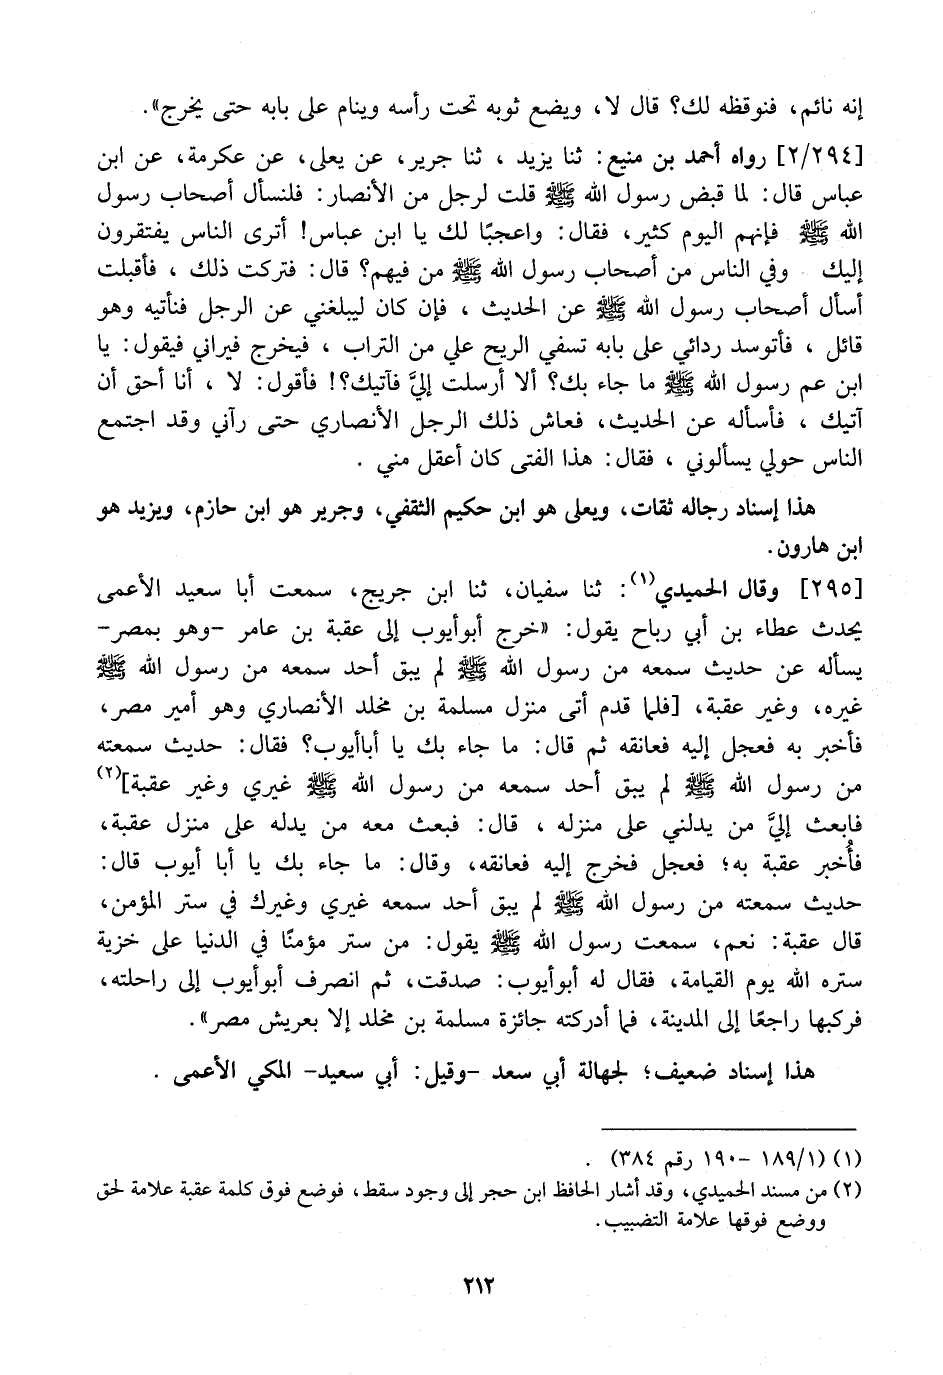 إنه نائم، فنوقظه لك؟ قال لا، ويضع ثوبه تحت رأسه وينام على بابه حتى يخرج».
[٢/٢٩٤] رواه أحمد بن منيع: ثنا يزيد ، ثنا جرير، عن يعلى، عن عكرمة، عن ابن
عباس قال: لما قبض رسول الله ﷺ قلت لرجل من الأنصار: فلنسأل أصحاب رسول
الله ﷺ فإنهم اليوم كثير، فقال: واعجبًا لك يا ابن عباس! أترى الناس يفتقرون
إليك وفي الناس من أصحاب رسول الله ﷺ من فيهم؟ قال: فتركت ذلك ، فأقبلت
أسأل أصحاب رسول الله ﷺ عن الحديث ، فإن كان ليبلغني عن الرجل فنأتيه وهو
قائل ، فأتوسد ردائي على بابه تسفي الريح علي من التراب ، فيخرج فيراني فيقول: يا
ابن عم رسول الله ﷺ ما جاء بك؟ ألا أرسلت إليَّ فآتيك؟! فأقول: لا ، أنا أحق أن
آتيك ، فأسأله عن الحديث، فعاش ذلك الرجل الأنصاري حتى رآني وقد اجتمع
الناس حولي يسألوني ، فقال: هذا الفتى كان أعقل مني .
هذا إسناد رجاله ثقات، ويعلى هو ابن حكيم الثقفي، وجرير هو ابن حازم، ويزيد هو
ابن هارون.
[٢٩٥] وقال الحميدي(١): ثنا سفيان، ثنا ابن جريج، سمعت أبا سعيد الأعمى
يحدث عطاء بن أبي رباح يقول: «خرج أبوأيوب إلى عقبة بن عامر –وهو بمصر–
يسأله عن حديث سمعه من رسول الله ﷺ لم يبق أحد سمعه من رسول الله ﷺ
غيره، وغير عقبة، [فلما قدم أتى منزل مسلمة بن مخلد الأنصاري وهو أمير مصر،
فأخبر به فعجل إليه فعانقه ثم قال: ما جاء بك يا أباأيوب؟ فقال: حديث سمعته
من رسول الله ﷺ لم يبق أحد سمعه من رسول الله ﷺ غيري وغير عقبة](٢)
فابعث إليَّ من يدلني على منزله ، قال: فبعث معه من يدله على منزل عقبة،
فأُخبر عقبة به؛ فعجل فخرج إليه فعانقه، وقال: ما جاء بك يا أبا أيوب قال:
حديث سمعته من رسول الله ﷺ لم يبق أحد سمعه غيري وغيرك في ستر المؤمن،
قال عقبة: نعم، سمعت رسول الله ﷺ يقول: من ستر مؤمنًا في الدنيا على خزية
ستره الله يوم القيامة، فقال له أبوأيوب: صدقت، ثم انصرف أبوأيوب إلى راحلته،
فركبها راجعًا إلى المدينة، فما أدركته جائزة مسلمة بن مخلد إلا بعريش مصر».
هذا إسناد ضعيف؛ لجهالة أبي سعد –وقيل: أبي سعيد– المكي الأعمى .
(١) (١/ ١٨٩– ١٩٠ رقم ٣٨٤) .
(٢) من مسند الحميدي، وقد أشار الحافظ ابن حجر إلى وجود سقط، فوضع فوق كلمة عقبة علامة لحق
ووضع فوقها علامة التضبيب.
٢١٢